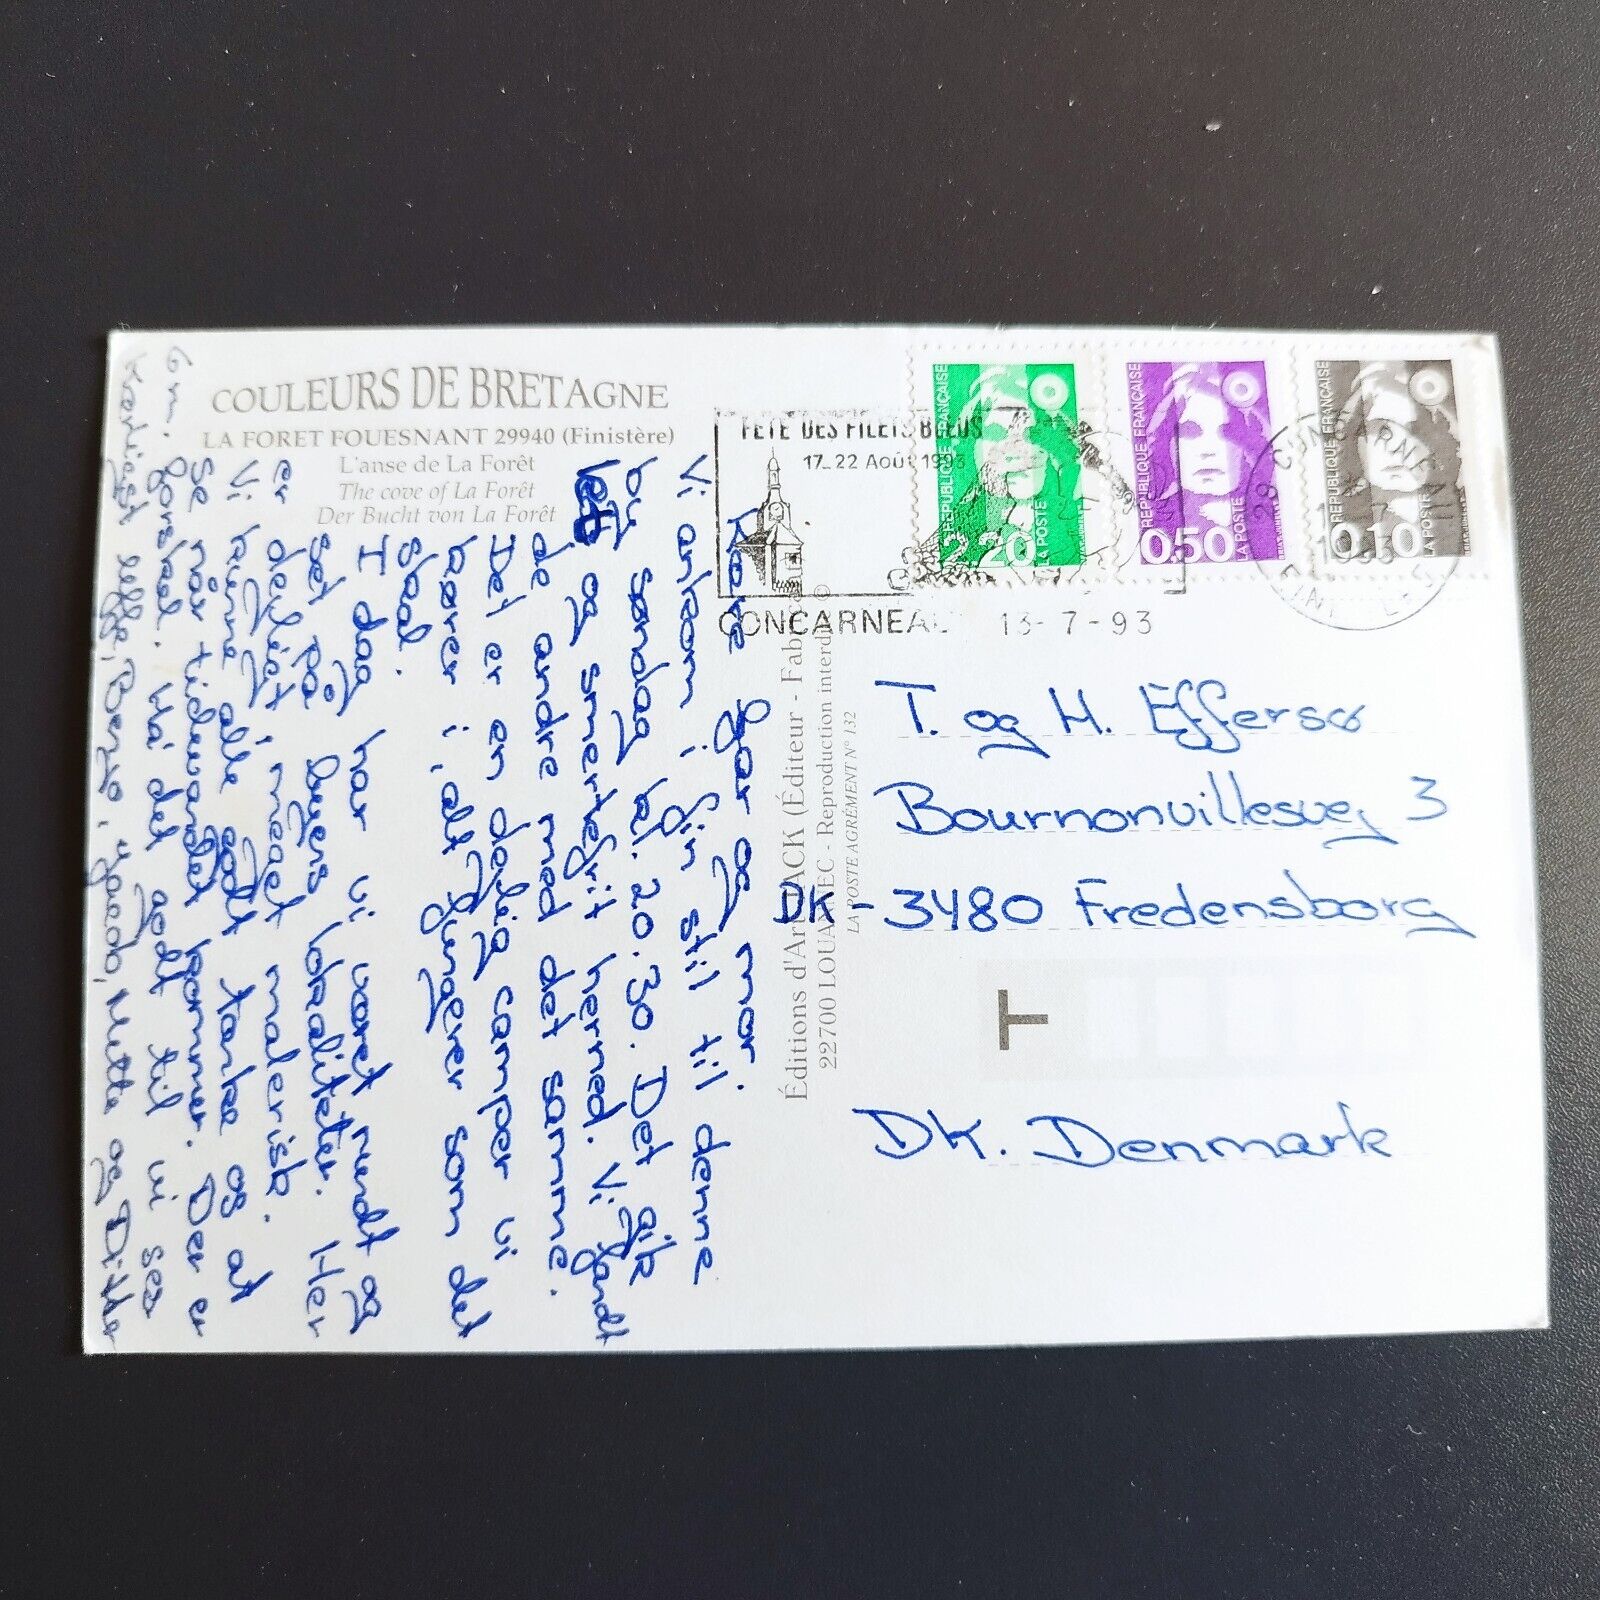 COULEURS DE BRETAGNE
LA FORET FOUESNANT 29940 (Finistère)
L'anse de La Forêt
The cove of La Forêt
Der Bucht von La Forêt
Kære far og mor.
Vi ankom i fin stil til denne
by søndag kl. 20.30. Det gik
let og smertefrit herned. Vi fandt
de andre med det samme.
Det er en dejlig camper vi
kører i, alt fungerer som det
skal.
I dag har vi været rundt og
set på byens lokaliteter. Her
er dejligt, meget malerisk.
Vi kunne alle godt tænke os at
se når tidevandet kommer. Der er
6 m. forskel. Ha' det godt til vi ses
Kærligst Uffe, Benzo, Jacob, Mette og Ditte
FÊTE DES FILETS BLEUS
17-22 Août 1993
CONCARNEAU 13-7-93
RÉPUBLIQUE FRANÇAISE
2,20
LA POSTE
RÉPUBLIQUE FRANÇAISE
0,50
LA POSTE
RÉPUBLIQUE FRANÇAISE
0,10
LA POSTE
29 CONCARNEAU
1993
FINISTÈRE
Éditions d'Art JACK (Éditeur - Fabric
22700 LOUANNEC - Reproduction interdite ©
LA POSTE AGRÉMENT N° 132
T. og H. Effersø
Bournonvillesvej 3
DK-3480 Fredensborg
T
DK. Denmark